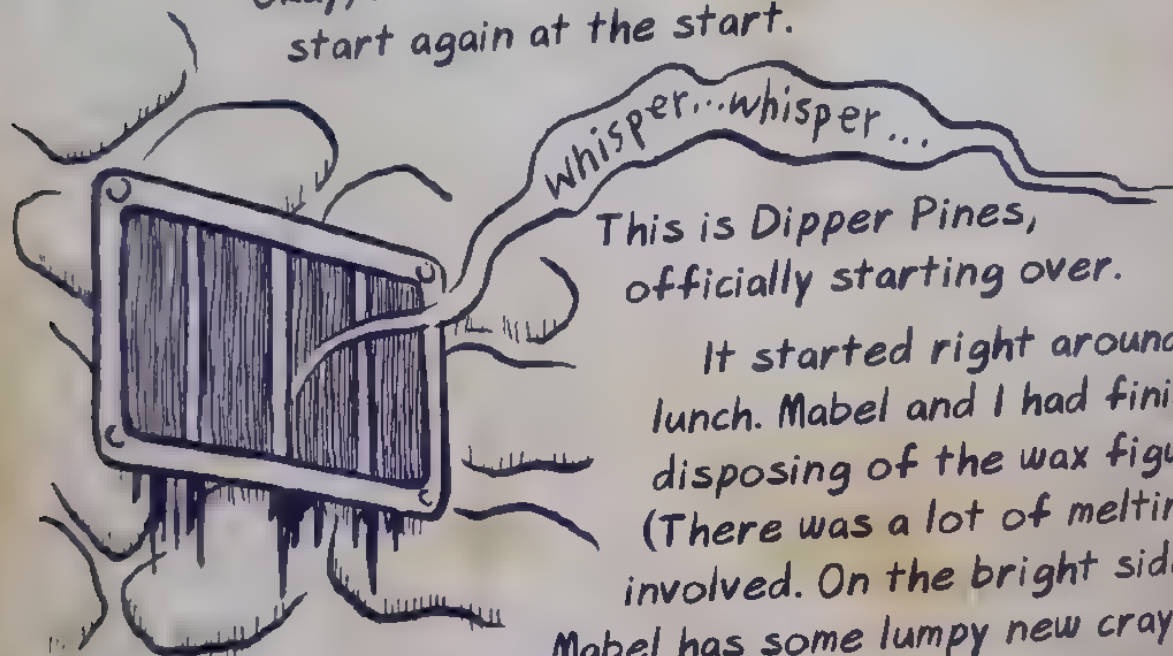 start again at the start.
whisper...whisper...
This is Dipper Pines,
officially starting over.
It started right around
lunch. Mabel and I had
disposing of the wax
(There was a lot of
involved. On the bright
Mabel has some lumpy new